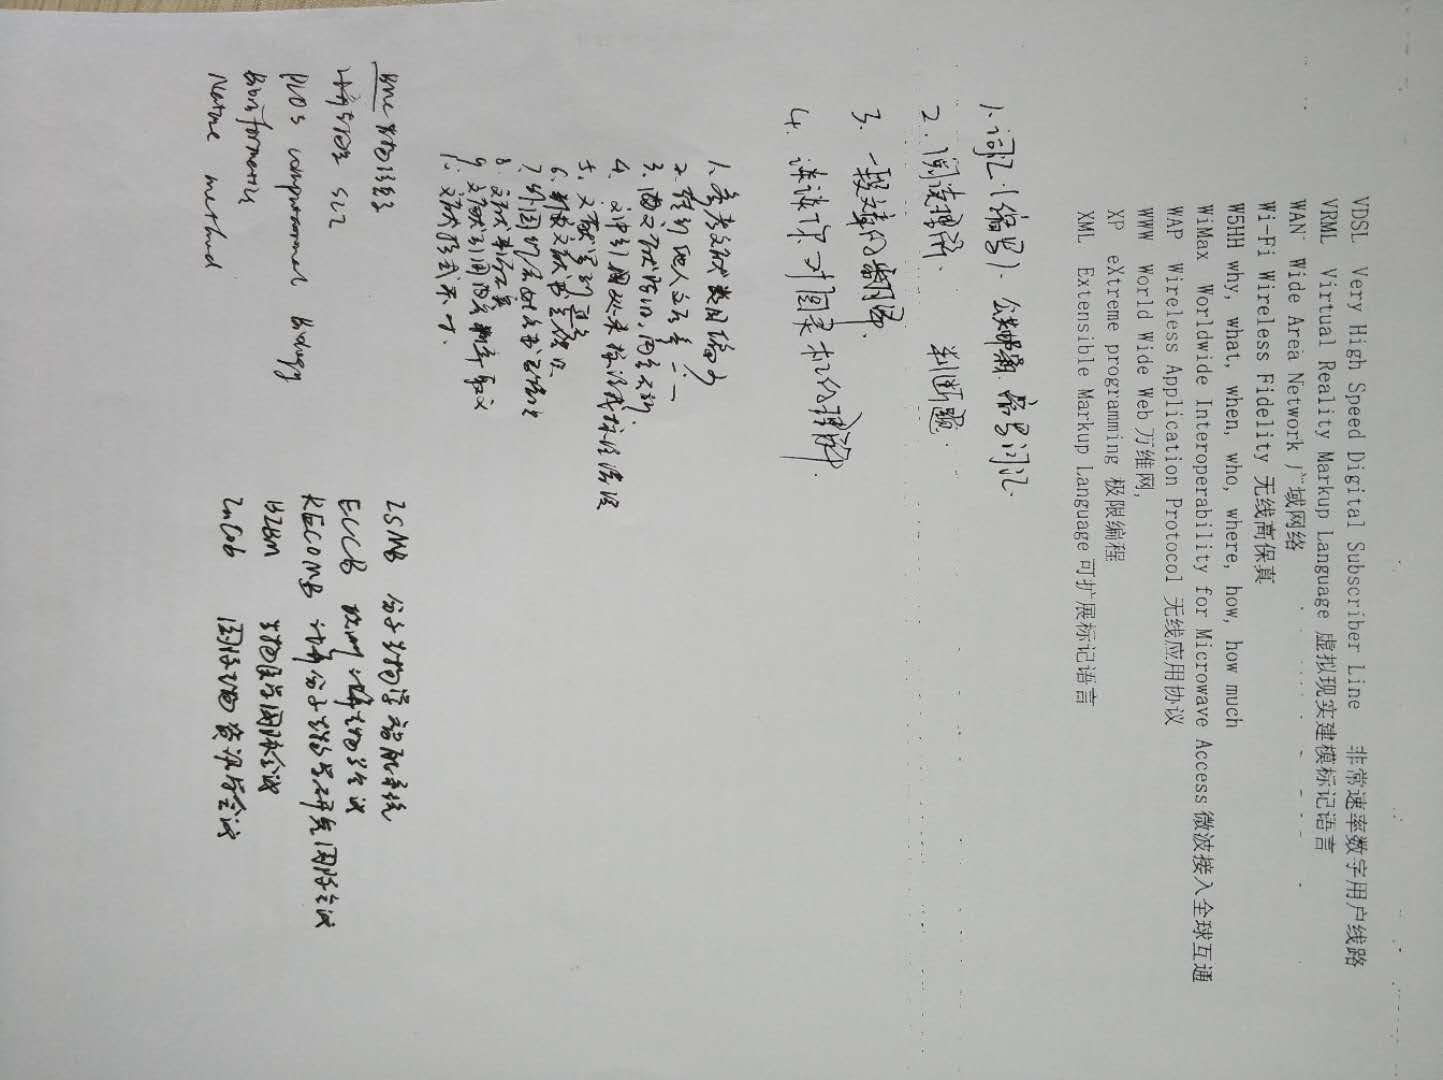 VDSL Very High Speed Digital Subscriber Line 非常速率数字用户线路
VRML Virtual Reality Markup Language 虚拟现实建模标记语言
WAN Wide Area Network 广域网络
Wi-Fi Wireless Fidelity 无线高保真
W5HH why, what, when, who, where, how, how much
WiMax Worldwide Interoperability for Microwave Access 微波接入全球互通
WAP Wireless Application Protocol 无线应用协议
WWW World Wide Web 万维网,
XP eXtreme programming 极限编程
XML Extensible Markup Language 可扩展标记语言
1. 词汇(缩写). 词汇
2. 阅读理解. 判断题.
3. 一段文章的翻译.
4. 谈谈你对图灵机的理解.
1. 参考文献数目偏少
2. 他人文后参
3. 文献陈旧,内容不新.
4. 文中引用处未标注或标注错误
5. 文献罗列过多
6. 文献书写
7. 外国作者姓名书写
8. 文献来历不实
9. 文献引用内容断章取义
10 文献形式不
BMC 生物信息学
计算生物学
PLOS computational Biology
Bioinformatics
Nature method
ISMB 分子生物学智能系统
ECCB 欧洲计算生物学会议
RECOMB 计算分子生物学研究国际会议
BIBM 生物医学国际会议
InCob 国际生物资讯学会议